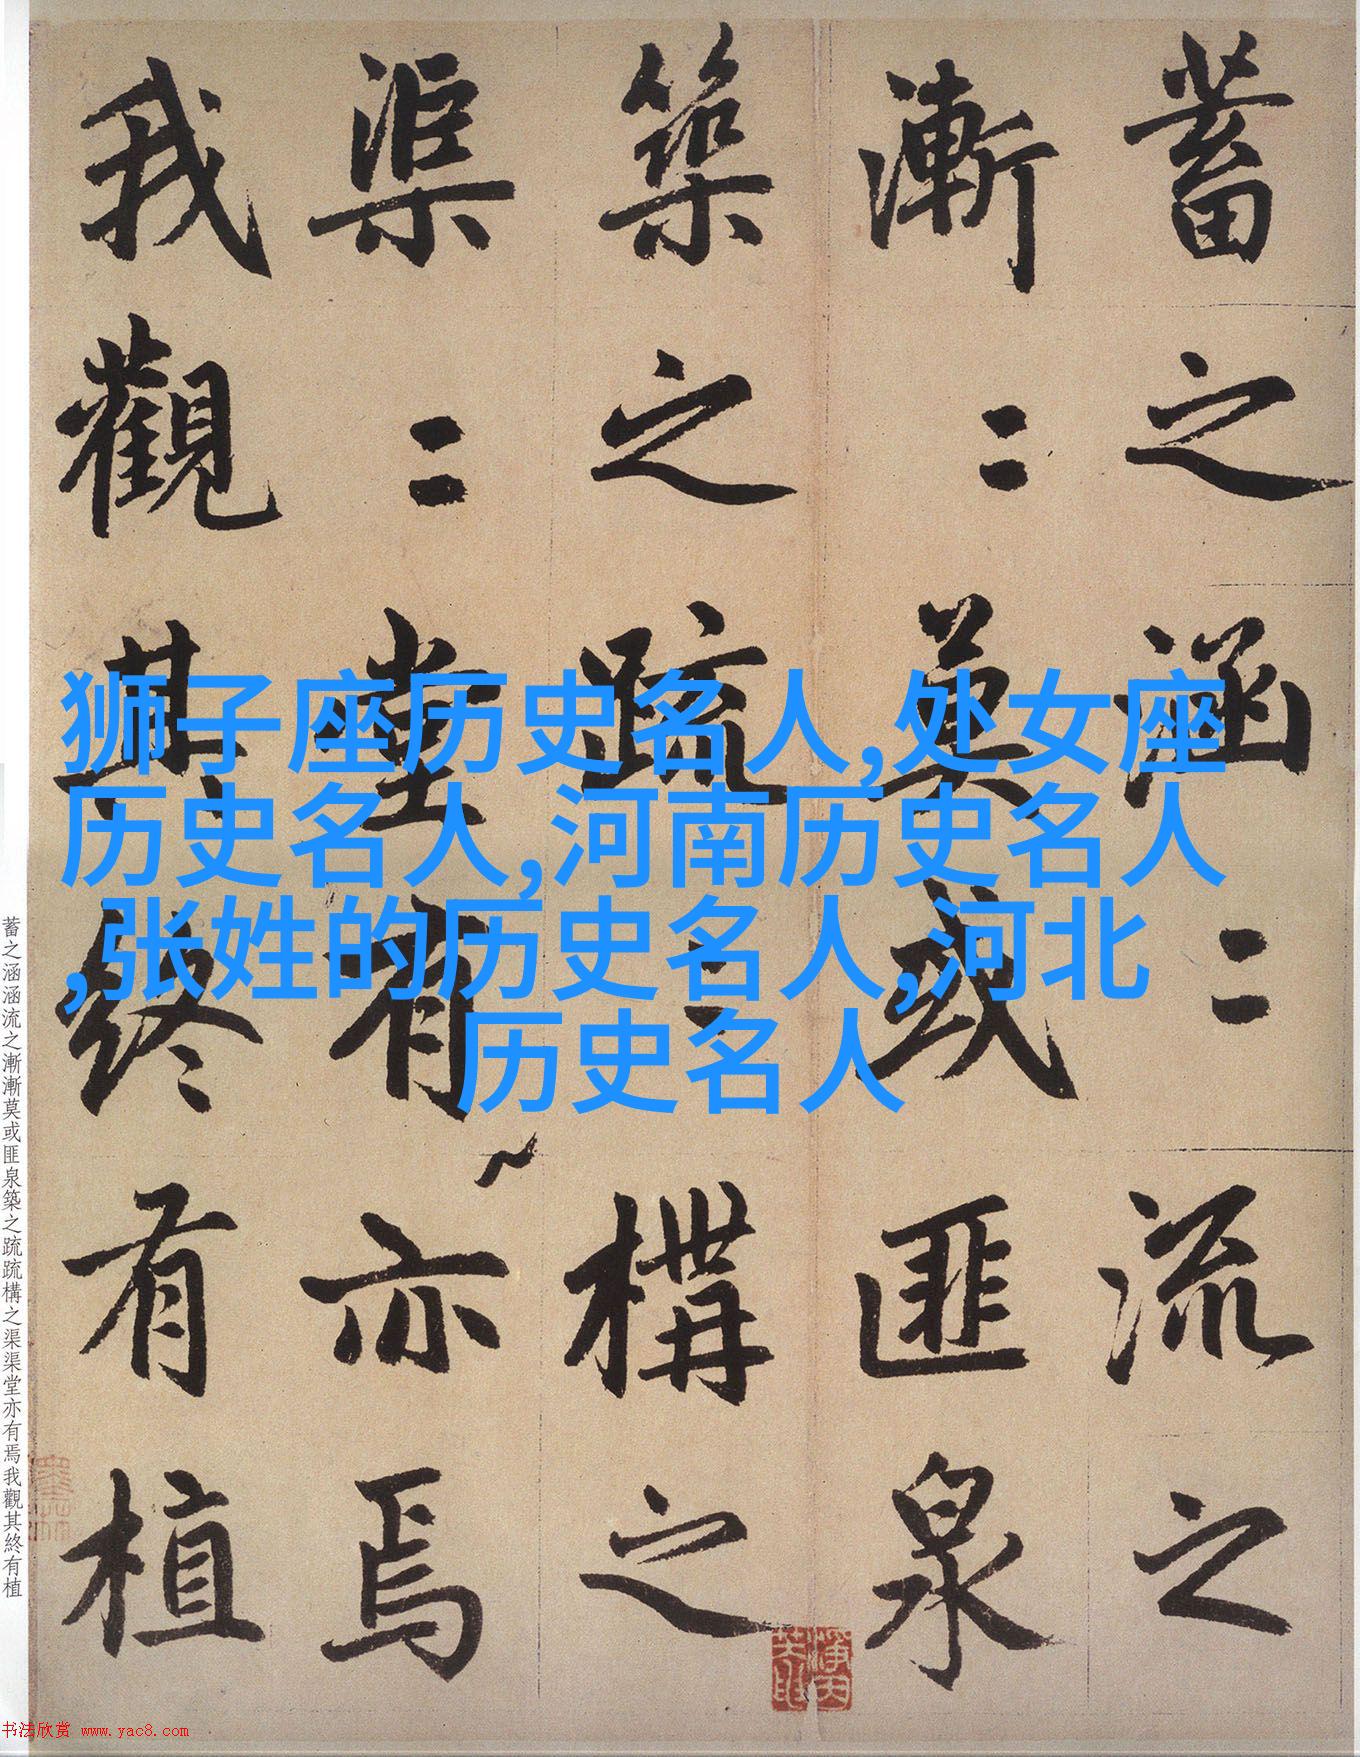 蓄之涵〻流之
漸〻莫或匪泉
築之疏〻構之
渠〻堂有亦焉
我觀其終有植
狮子座历史名人,处女座
历史名人,河南历史名人
,张姓的历史名人,河北
历史名人
蓄之涵涵流之漸漸莫或匪泉築之疏疏構之渠渠堂亦有焉我觀其終有植
书法欣赏 www.yac8.com